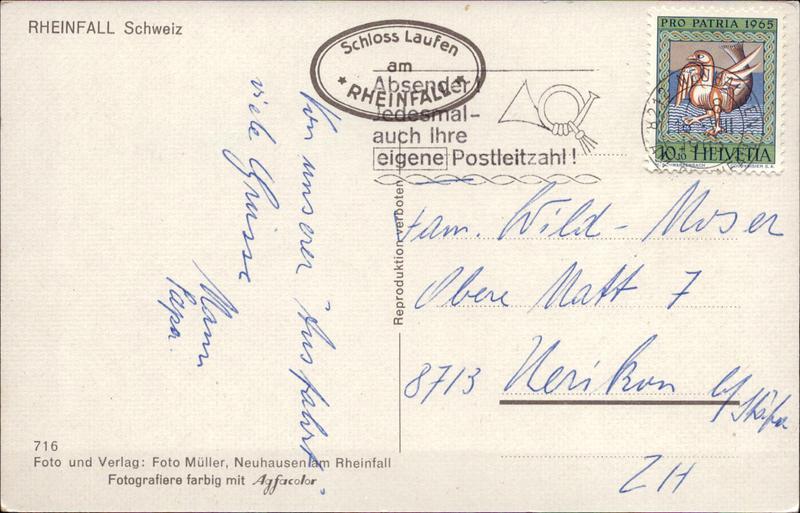 RHEINFALL Schweiz
Schloss Laufen
am
* RHEINFALL *
Absender!
Jedesmal-
auch Ihre
eigene Postleitzahl!
PRO PATRIA 1965
10+10 HELVETIA
Von unserer "Ausfahrt"
viele Grüsse
Mami
Papa.
Fam. Wild-Moser
Obere Matt 7
8713 Uerikon b/
Stäfa
ZH
Reproduktion verboten
716
Foto und Verlag: Foto Müller, Neuhausen am Rheinfall
Fotografiere farbig mit Agfacolor